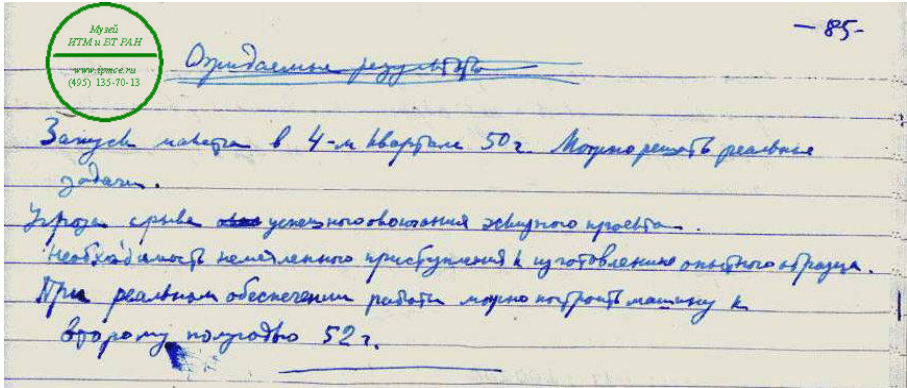 Музей
ИТМ и ВТ РАН
www.ipmce.ru
(495) 135-70-13
— 85 -
Ожидаемые результаты
Запуск макета в 4-м квартале 50 г. Можно решать реальные
задачи.
Угроза срыва успешного окончания эскизного проекта.
Необходимость немедленного приступления к изготовлению опытного образца.
При реальном обеспечении работы можно построить машину к
второму полугодию 52 г.